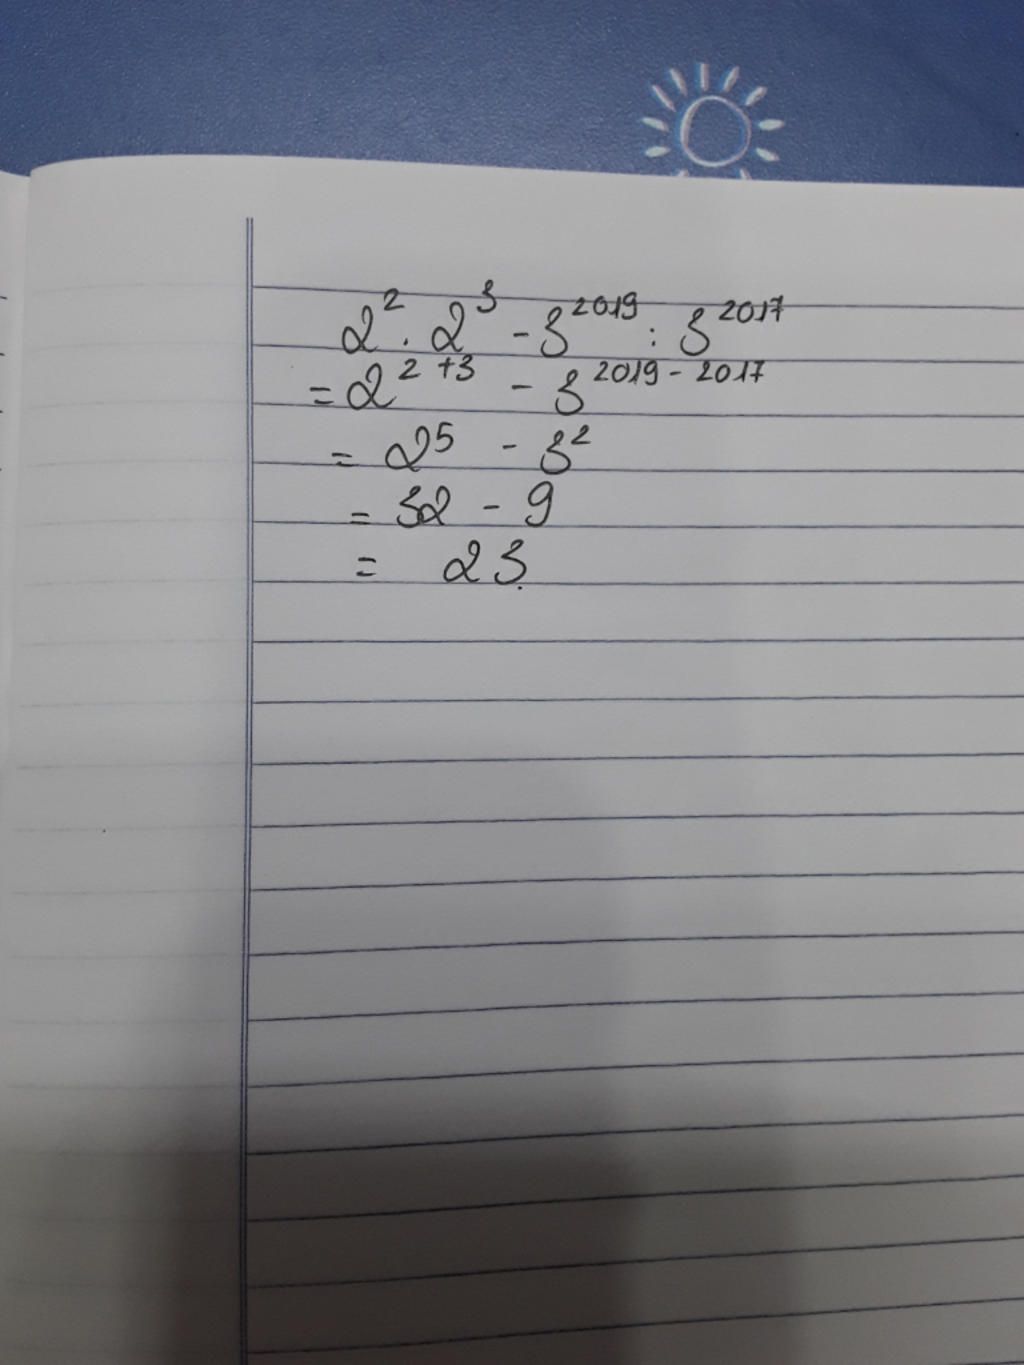 2² . 2³ - 3²⁰¹⁹ : 3²⁰¹⁷
= 2²⁺³ - 3²⁰¹⁹⁻²⁰¹⁷
= 2⁵ - 3²
= 32 - 9
= 23.